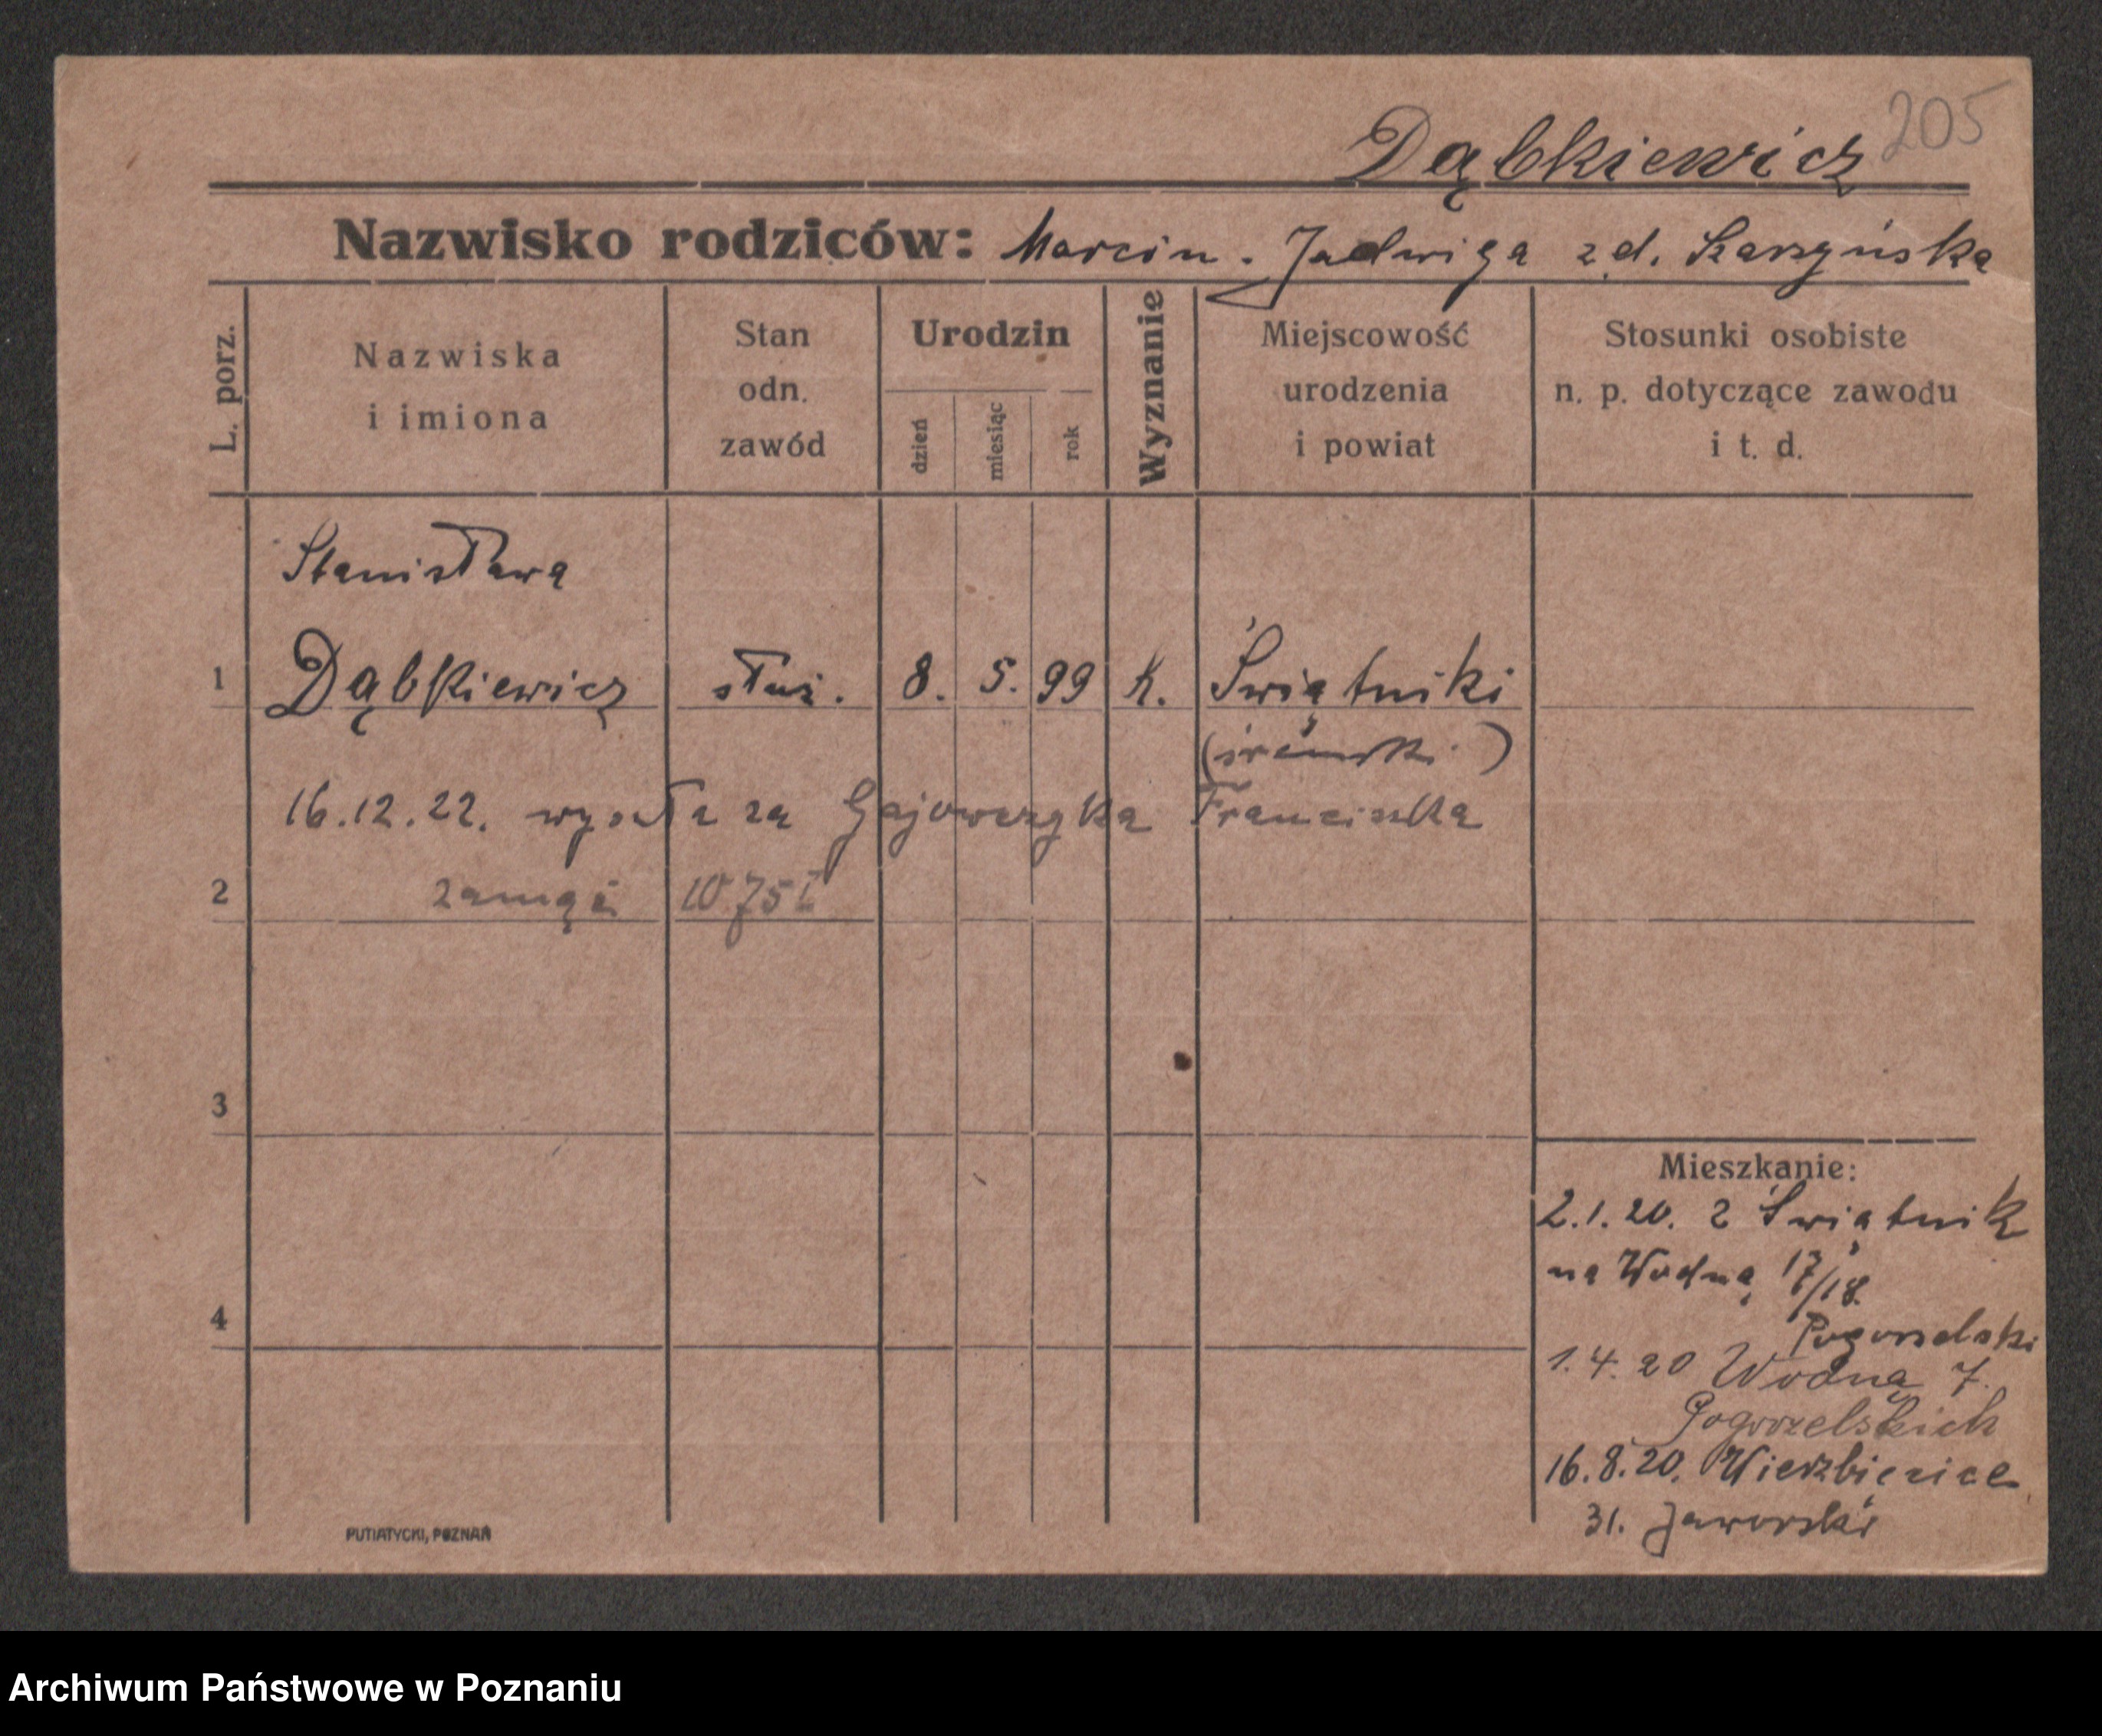 205
Dąbkiewicz
Nazwisko rodziców: Marcin. Jadwiga zd. Skarzyńska
L. porz.
Nazwiska
i imiona
Stan
odn.
zawód
Urodzin
dzień
miesiąc
rok
Wyznanie
Miejscowość
urodzenia
i powiat
Stosunki osobiste
n. p. dotyczące zawodu
i t. d.
Stanisława
1 Dąbkiewicz służ. 8. 5. 99 k. Świątniki
(śremski)
16.12.22. wyszła za Gajowczyka Franciszka
2 zamąż 1075
3
4
Mieszkanie:
2.1.20. z Świątnik
na Wodną 17/18.
Pogorzelski
1.4.20 Wodna 7.
Pogorzelskich
16.8.20. Wierzbięcice
31. Jaworski
PUTIATYCKI, POZNAŃ
Archiwum Państwowe w Poznaniu